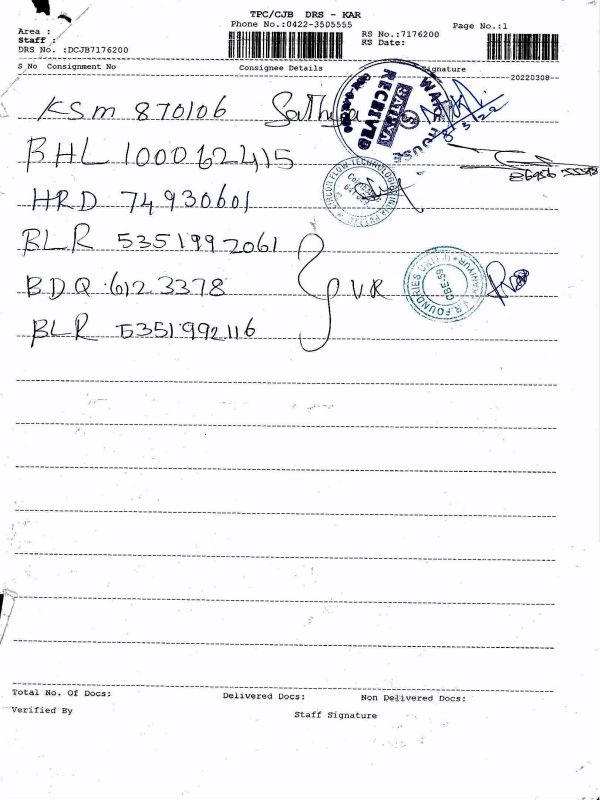 TPC/CJB DRS - KAR
Phone No.:0422-3505555
Page No.:1
Area :
Staff :
DRS No. :DCJB7176200
RS No.:7176200
RS Date:
S No Consignment No Consignee Details Signature
20220308
KSM 870106 Sathya
WARE HOUSE
RECEIVED
8/3/22
BHL 100062415
HRD 74930601
BLR 5351997061
BDQ 612 3378 V.R
R.FOUNDRIES UNIT-II
CBE-59
BLR 5351992116
Total No. Of Docs: Delivered Docs: Non Delivered Docs:
Verified By Staff Signature